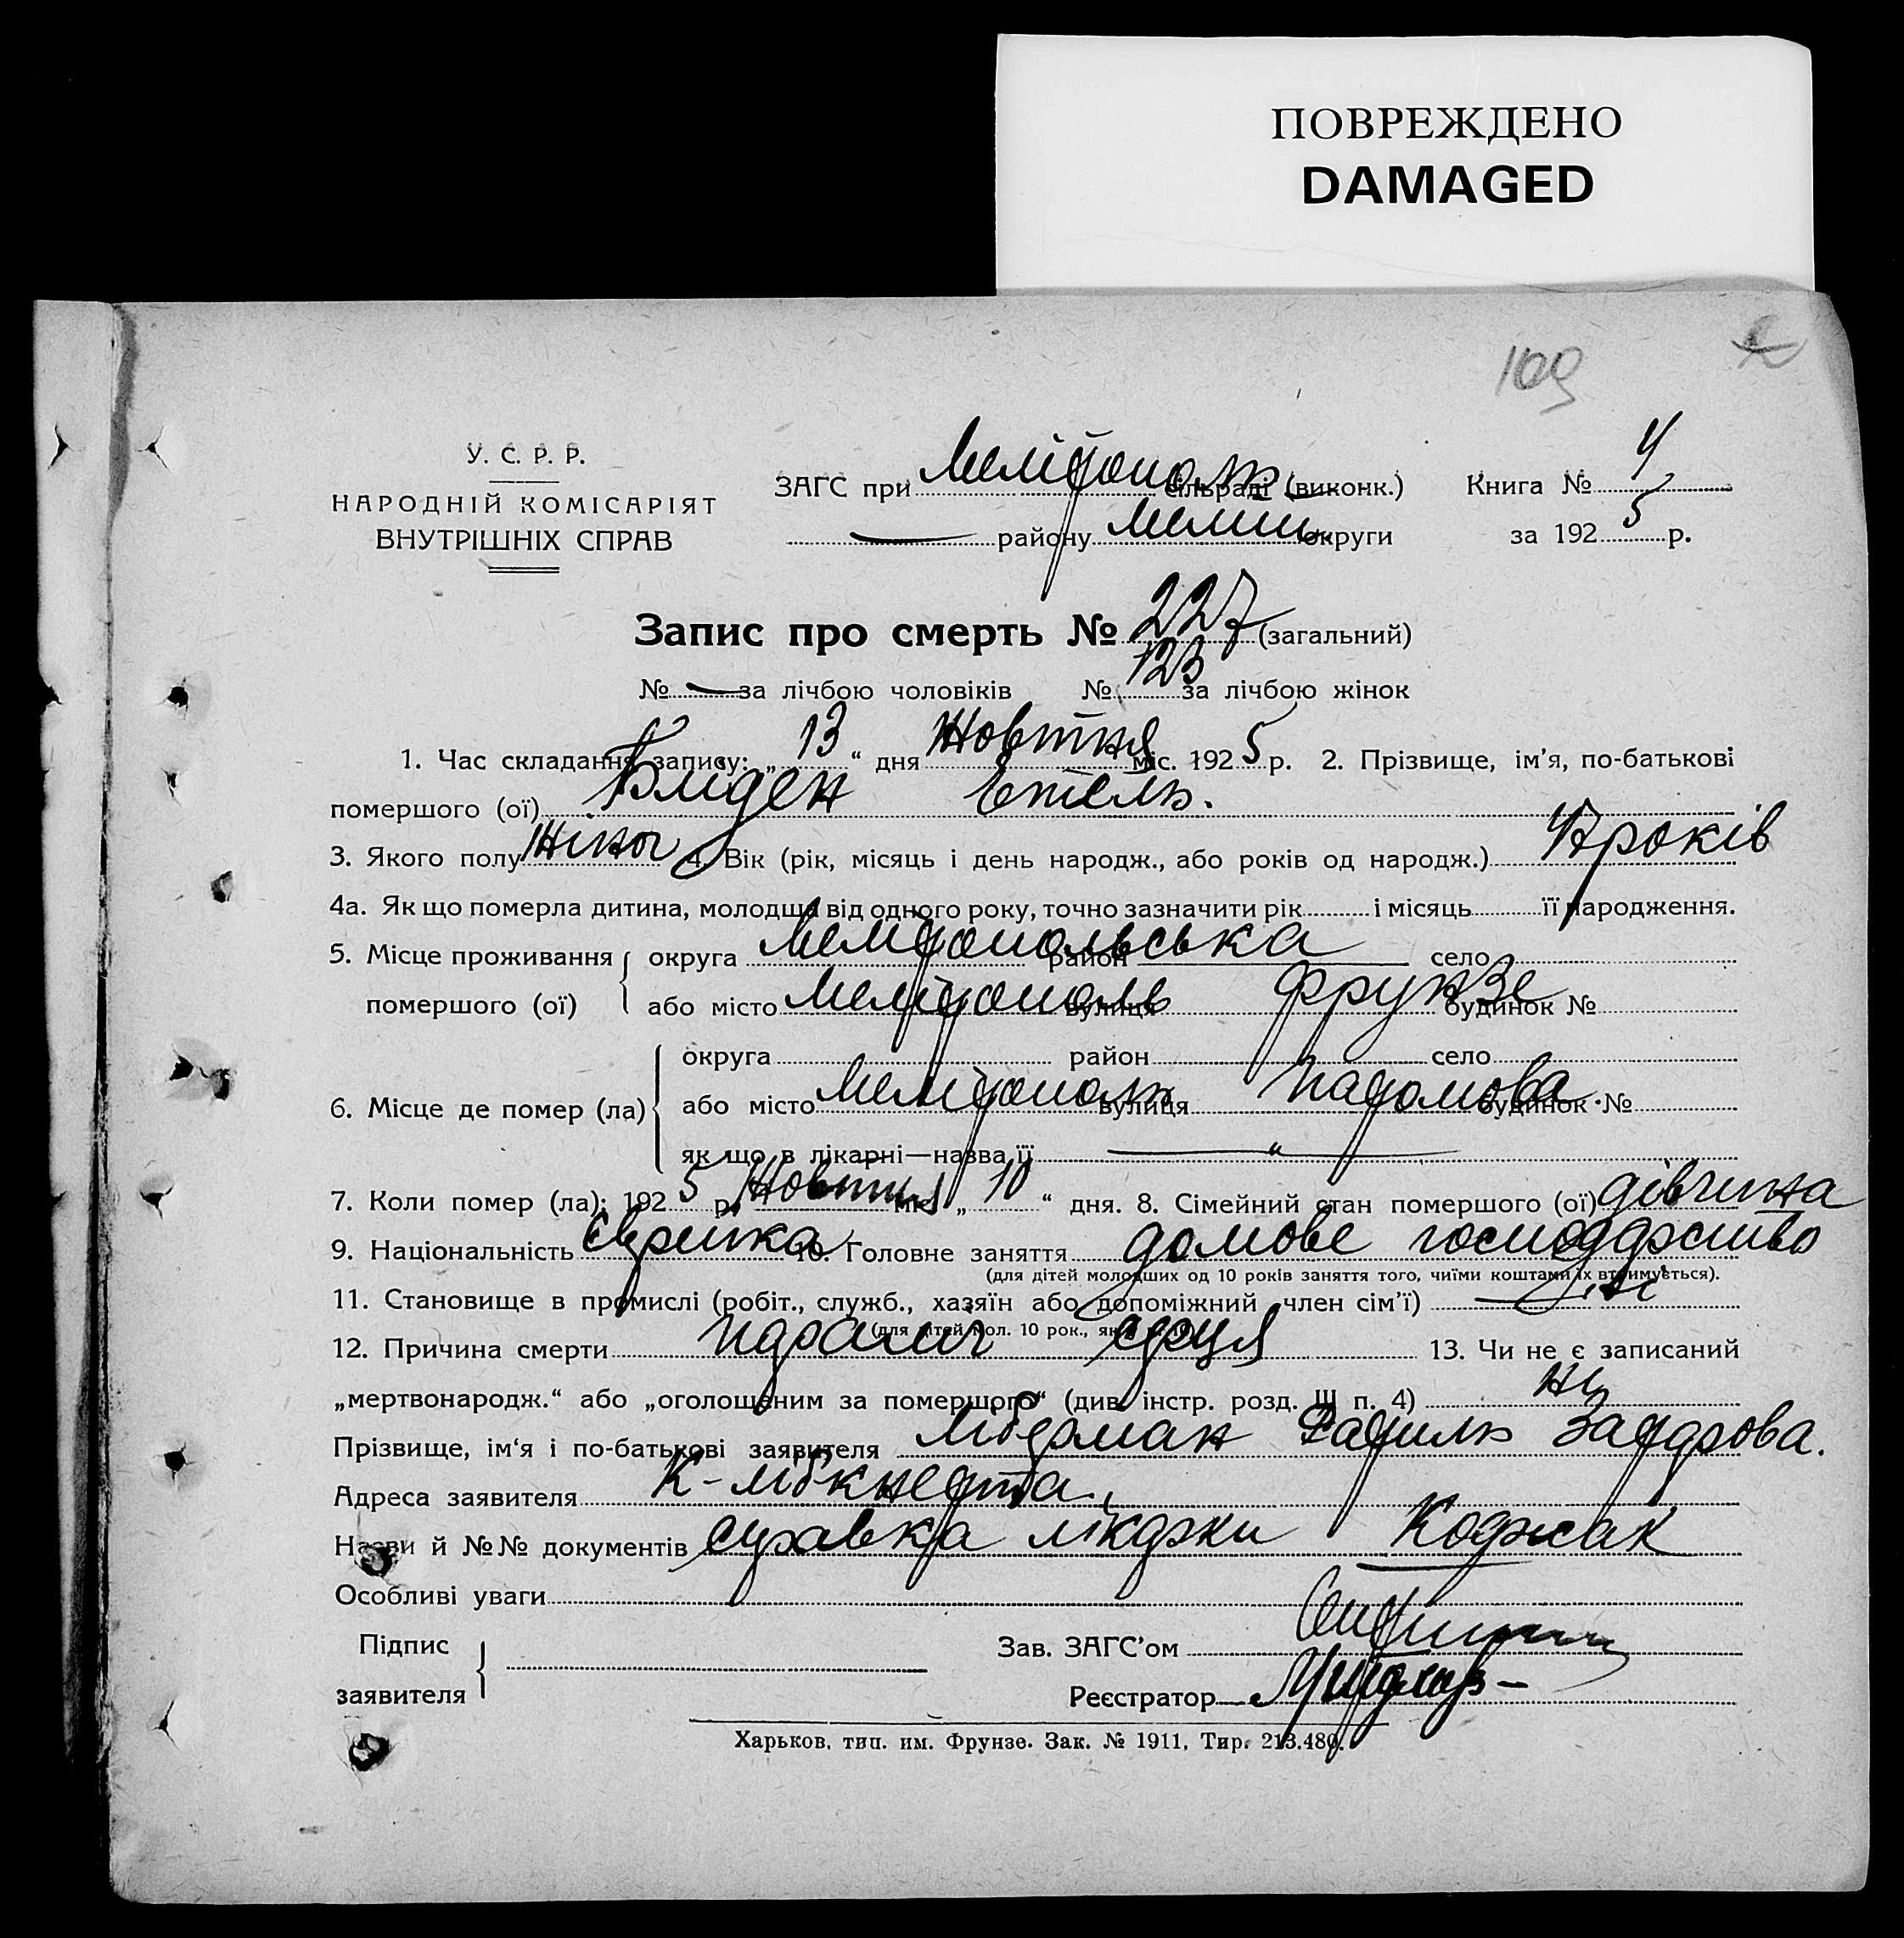 ПОВРЕЖДЕНО
DAMAGED
109
У. С. Р. Р.
НАРОДНІЙ КОМІСАРІЯТ
ВНУТРІШНІХ СПРАВ
ЗАГС при Мелітополь сільраді (виконк.) Книга № 4
— району Мелит округи за 1925 р.
Запис про смерть № 227 (загальний)
№ — за лічбою чоловіків № 123 за лічбою жінок
1. Час складання запису: „13“ дня Жовтня міс. 1925 р. 2. Прізвище, ім’я, по-батькові
помершого (ої) Етель.
3. Якого полу 4. Вік (рік, місяць і день народж., або років од народж.) років
4а. Як що померла дитина, молодша від одного року, точно зазначити рік і місяць її народження.
5. Місце проживання округа Мелітопольська район — село
помершого (ої) або місто Мелітополь вулиця Фрунзе будинок №
округа район село
6. Місце де помер (ла) або місто Мелітополь вулиця будинок №
як що в лікарні—назва її — „ —
7. Коли помер (ла): 1925 р. Жовтня міс. „10“ дня. 8. Сімейний стан помершого (ої) дівчина
9. Національність Єврейка 10. Головне заняття домове господарство
(для дітей молодших од 10 років заняття того, чиїми коштами їх втримується).
11. Становище в промислі (робіт., служб., хазяїн або допоміжний член сім’ї)
12. Причина смерти параліч серця 13. Чи не є записаний
„мертвонародж.“ або „оголошеним за помершого“ (див. інстр. розд. Ш п. 4) ні
Прізвище, ім‘я і по-батькові заявителя Ліберман
Адреса заявителя К-Лібкнехта
Назви й №№ документів справка лікарки Коджак
Особливі уваги
Підпис Зав. ЗАГС’ом
заявителя Реєстратор
Харьков, тип. им. Фрунзе. Зак. № 1911, Тир. 213.480.